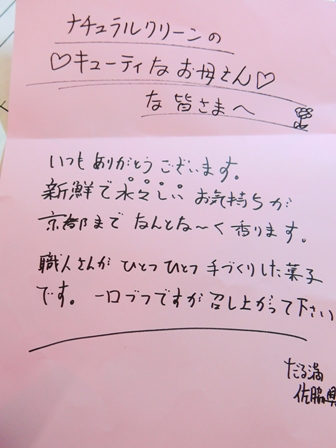 ナチュラルクリーンの
♡キューティなお母さん♡
な皆さまへ
いつもありがとうございます。
新鮮で水々しい お気持ちが
京都まで なんとな〜く香ります。
職人さんが ひとつひとつ 手づくりした菓子
です。一口づつですが召し上がって下さい
たる満
佐脇